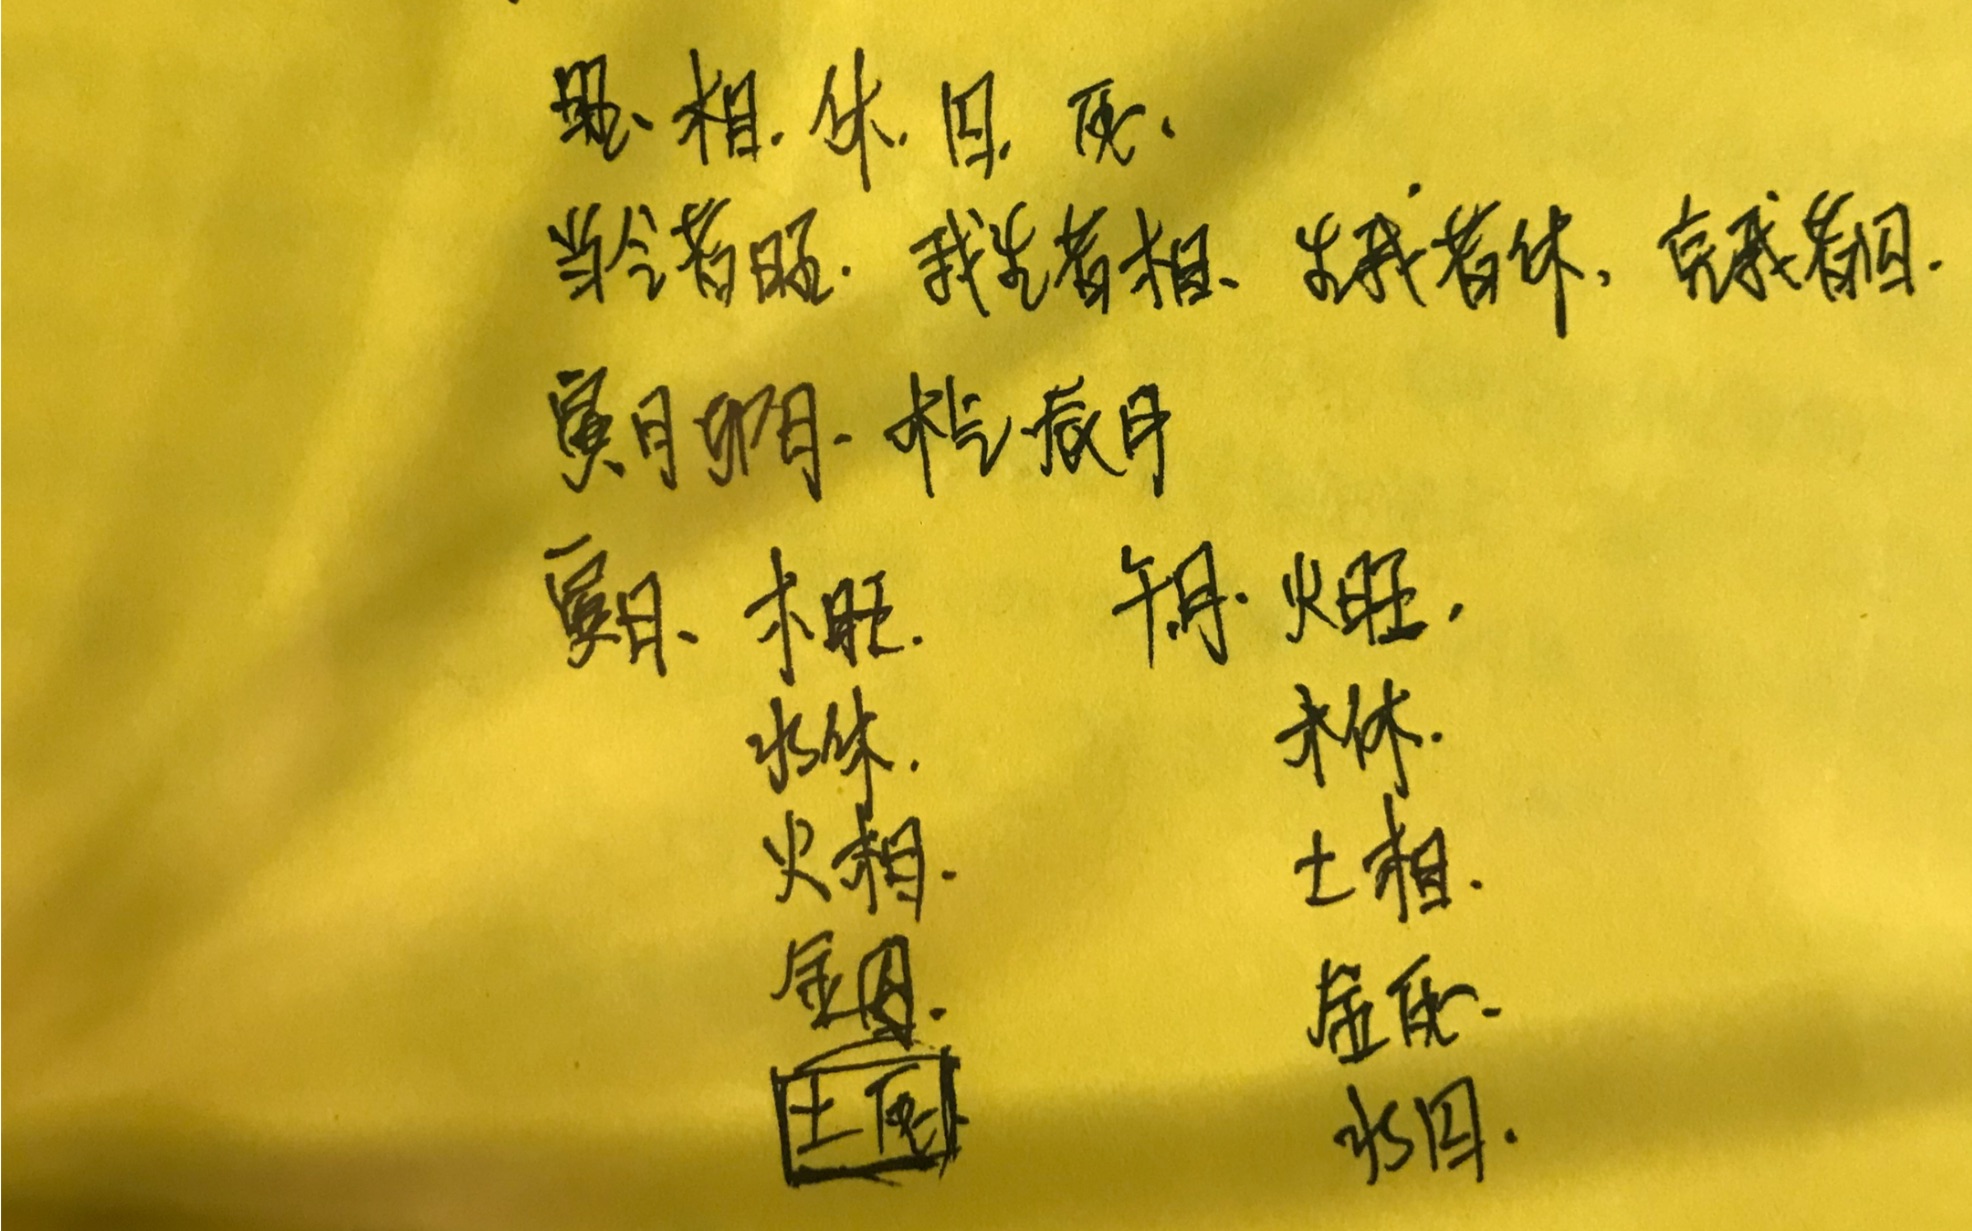 旺、相.休.囚.死.
当令者旺.我生者相、生我者休,克我者囚.
寅月卯月.木气.辰月
寅月、木旺. 午月.火旺.
水休. 木休.
火相. 土相.
金囚. 金死.
土死. 水囚.